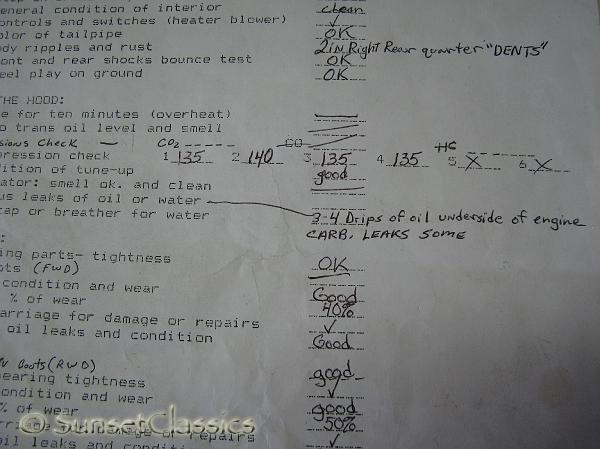 general condition of interior clean
controls and switches (heater blower) ✓
color of tailpipe OK
body ripples and rust 2 in Right Rear quarter "DENTS"
front and rear shocks bounce test OK
wheel play on ground OK
THE HOOD:
e for ten minutes (overheat)
o trans oil level and smell
sions Check — CO2 CO HC
pression check 1 135 2 140 3 135 4 135 5 X 6 X
dition of tune-up good
ator: smell ok. and clean
us leaks of oil or water 3-4 Drips of oil underside of engine
cap or breather for water CARB. LEAKS SOME
ing parts- tightness OK
ots (FWD)
condition and wear Good
% of wear 40%
arriage for damage or repairs ✓
oil leaks and condition Good
Boots (RWD)
earing tightness good
ondition and wear ✓ good
% of wear 50%
rriage damage or repairs
oil leaks and condition ✓
© SunsetClassics